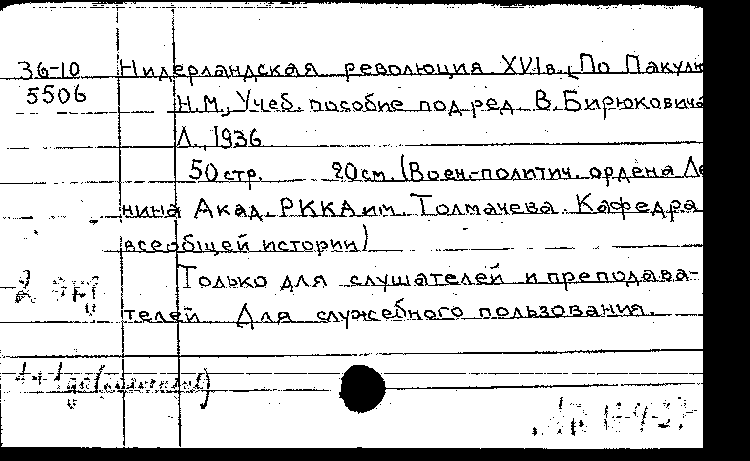 36-10 Нидерландская революция XVI в., По Пакулю
5506 Н.М., Учеб. пособие под ред. В. Бирюковича
Л., 1936
50 стр. 20 см. (Воен.-политич. ордена Ле
нина Акад. РККА им. Толмачева. Кафедра
всеобщей истории)
Только для слушателей и преподава-
телей Для служебного пользования.
2